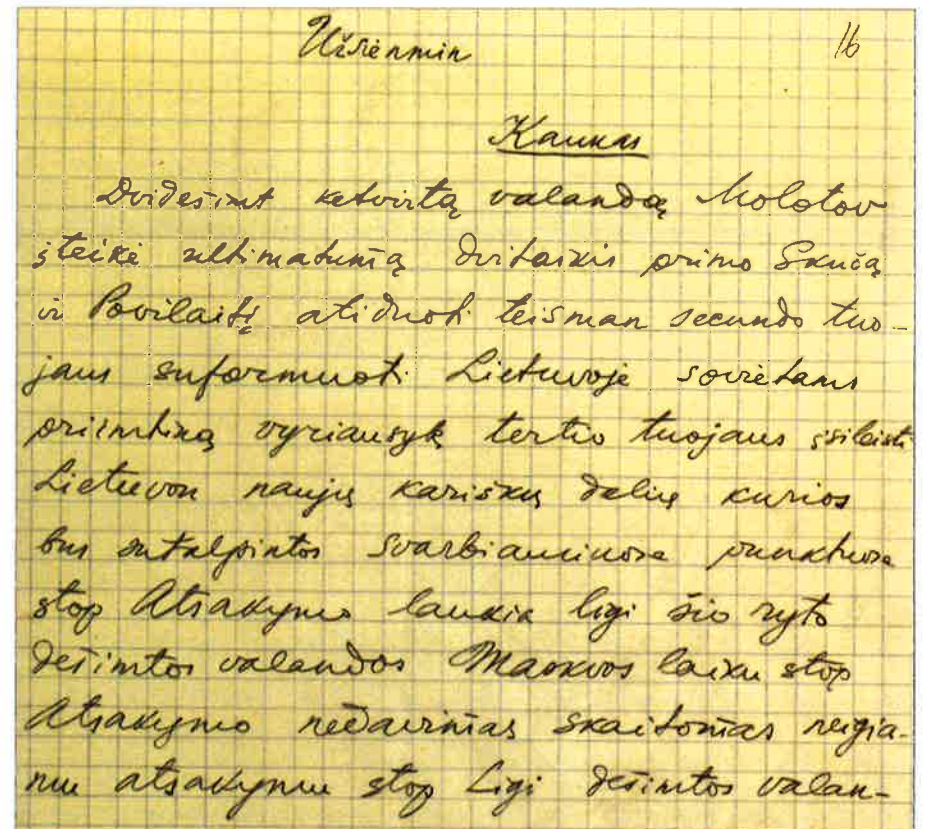 Užsienmin
16
Kaunas
Dvidešimt ketvirtą valandą Molotov
įteikė ultimatumą dvitaškis primo Skučą
ir Povilaitį atiduoti teisman secundo tuo-
jaus suformuoti Lietuvoje sovietams
priimtiną vyriausybę tertio tuojaus įsileisti
Lietuvon naujų kariškų dalių kurios
bus sutalpintos svarbiausiuose punktuose
stop Atsakymo laukia ligi šio ryto
dešimtos valandos Maskvos laiku stop
Atsakymo nedavimas skaitomas neigia-
mu atsakymu stop Ligi dešimtos valan-